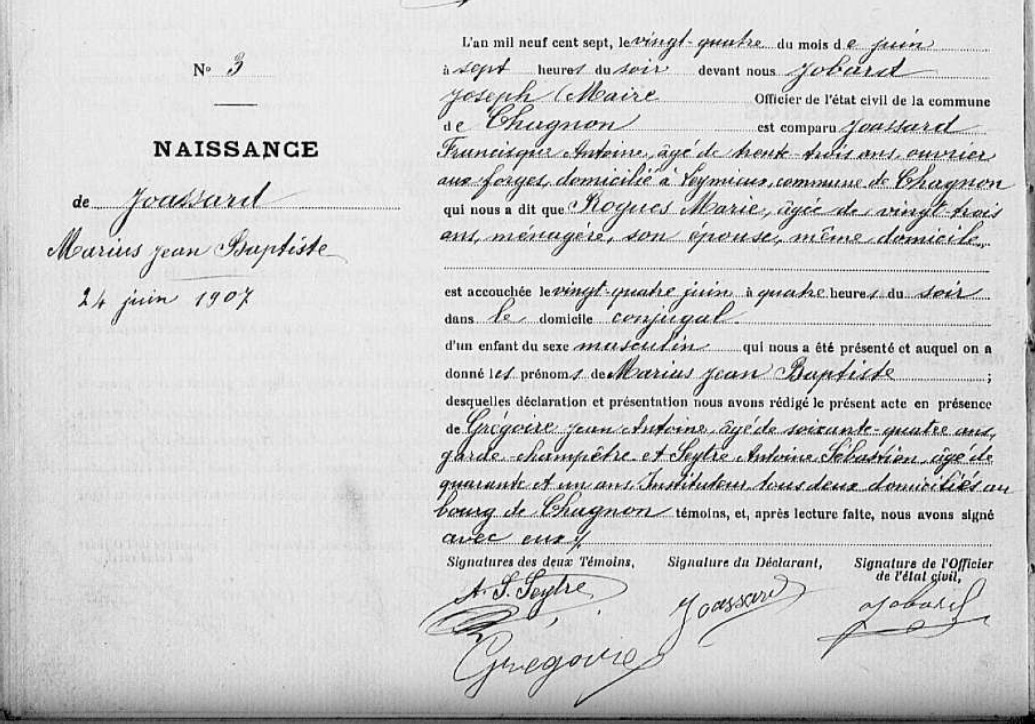 N° 3
NAISSANCE
de Joassard
Marius Jean Baptiste
24 juin 1907
L'an mil neuf cent sept, le vingt-quatre du mois de juin
à sept heures du soir devant nous Jobard
Joseph Maire Officier de l'état civil de la commune
de Chagnon est comparu Joassard
Francisque Antoine, âgé de trente-trois ans, ouvrier
aux forges, domicilié à Leymieux, commune de Chagnon
qui nous a dit que Rogues Marie, âgée de vingt-trois
ans, ménagère, son épouse, même domicile
est accouchée le vingt-quatre juin à quatre heures du soir
dans le domicile conjugal
d'un enfant du sexe masculin qui nous a été présenté et auquel on a
donné les prénoms de Marius Jean Baptiste ;
desquelles déclaration et présentation nous avons rédigé le présent acte en présence
de Grégoire Jean Antoine, âgé de soixante-quatre ans,
garde-champêtre et Seytre Antoine Sébastien, âgé de
quarante et un ans, Instituteur, tous deux domiciliés au
bourg de Chagnon témoins, et, après lecture faite, nous avons signé
avec eux
Signatures des deux Témoins, Signature du Déclarant, Signature de l'Officier
de l'état civil,
A. S. Seytre Joassard Jobard
Grégoire